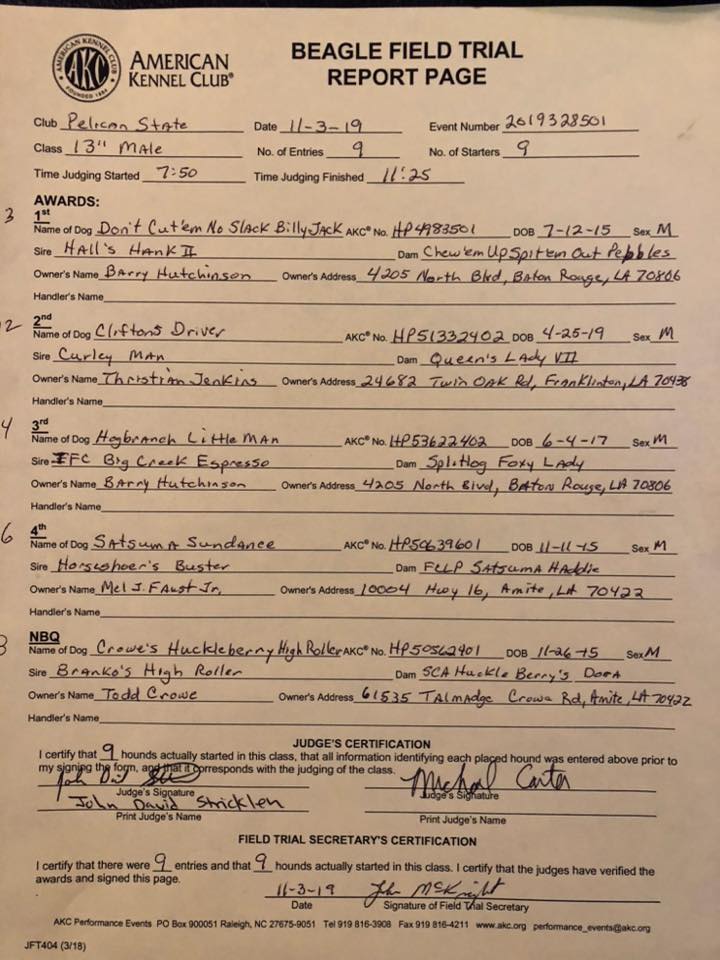 AMERICAN KENNEL CLUB
AKC
FOUNDED 1884
AMERICAN
KENNEL CLUB®
BEAGLE FIELD TRIAL
REPORT PAGE
Club Pelican State Date 11-3-19 Event Number 2019328501
Class 13" Male No. of Entries 9 No. of Starters 9
Time Judging Started 7:50 Time Judging Finished 11:25
AWARDS:
3 1st
Name of Dog Don't Cut'em No Slack Billy Jack AKC® No. HP4983501 DOB 7-12-15 Sex M
Sire Hall's Hank II Dam Chew'em Up Spit'em Out Pebbles
Owner's Name Barry Hutchinson Owner's Address 4205 North Blvd, Baton Rouge, LA 70806
Handler's Name
2 2nd
Name of Dog Cliftons Driver AKC® No. HP51332402 DOB 4-25-19 Sex M
Sire Curley Man Dam Queen's Lady VII
Owner's Name Christian Jenkins Owner's Address 24682 Twin Oak Rd, Franklinton, LA 70438
Handler's Name
4 3rd
Name of Dog Hogbranch Little Man AKC® No. HP53622402 DOB 6-4-17 Sex M
Sire IFC Big Creek Espresso Dam Splitlog Foxy Lady
Owner's Name Barry Hutchinson Owner's Address 4205 North Blvd, Baton Rouge, LA 70806
Handler's Name
6 4th
Name of Dog Satsuma Sundance AKC® No. HP50639601 DOB 11-11-15 Sex M
Sire Horseshoer's Buster Dam FCLP Satsuma Haddie
Owner's Name Mel J. Faust Jr. Owner's Address 10004 Hwy 16, Amite, LA 70422
Handler's Name
NBQ
Name of Dog Crowe's Huckleberry High Roller AKC® No. HP50562901 DOB 11-26-15 Sex M
Sire Branko's High Roller Dam SCA Huckle Berry's Dora
Owner's Name Todd Crowe Owner's Address 61535 Talmadge Crowe Rd, Amite, LA 70422
Handler's Name
JUDGE'S CERTIFICATION
I certify that 9 hounds actually started in this class, that all information identifying each placed hound was entered above prior to
my signing the form, and that it corresponds with the judging of the class.
John Michael Carter
Judge's Signature Judge's Signature
John David Stricklen
Print Judge's Name Print Judge's Name
FIELD TRIAL SECRETARY'S CERTIFICATION
I certify that there were 9 entries and that 9 hounds actually started in this class. I certify the judges have verified the
awards and signed this page.
11-3-19 John McKnight
Date Signature of Field Trial Secretary
AKC Performance Events PO Box 900051 Raleigh, NC 27675-9051 Tel 919 816-3908 Fax 919 816-4211 www.akc.org performance_events@akc.org
JFT404 (3/18)